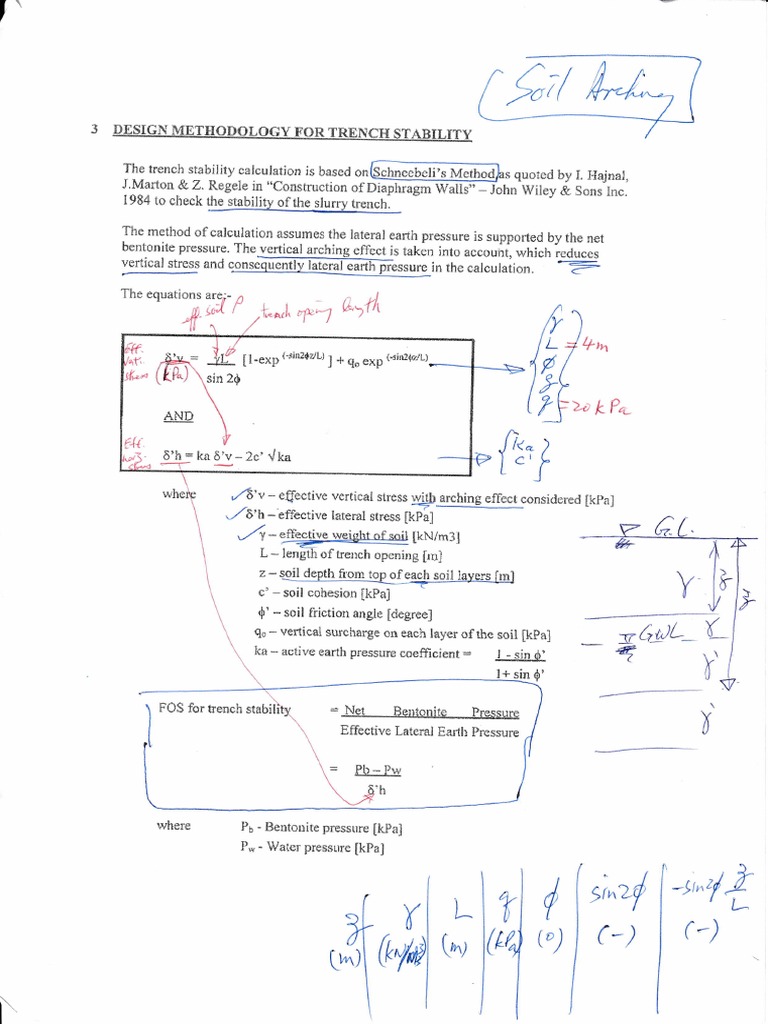 Soil Arching
3 DESIGN METHODOLOGY FOR TRENCH STABILITY
The trench stability calculation is based on Schneebeli's Method as quoted by I. Hajnal,
J.Marton & Z. Regele in "Construction of Diaphragm Walls" – John Wiley & Sons Inc.
1984 to check the stability of the slurry trench.
The method of calculation assumes the lateral earth pressure is supported by the net
bentonite pressure. The vertical arching effect is taken into account, which reduces
vertical stress and consequently lateral earth pressure in the calculation.
The equations are:-
eff. soil ρ
trench opening length
Eff. Vert. stress (kPa)
δ'v = γL [1-exp (-sin2φz/L) ] + qo exp (-sin2φz/L)
sin 2φ
γ
L = 4m
φ
z
q = 20 kPa
AND
Eff. horz. stress
δ'h = ka δ'v – 2c' √ka
ka
c'
where δ'v – effective vertical stress with arching effect considered [kPa]
δ'h – effective lateral stress [kPa]
γ – effective weight of soil [kN/m3]
L – length of trench opening [m]
z – soil depth from top of each soil layers [m]
c' – soil cohesion [kPa]
φ' – soil friction angle [degree]
qo – vertical surcharge on each layer of the soil [kPa]
ka – active earth pressure coefficient = 1 - sin φ'
1+ sin φ'
G.L.
γ z z
GWL γ
γ'
γ'
FOS for trench stability = Net Bentonite Pressure
Effective Lateral Earth Pressure
= Pb – Pw
δ'h
where Pb - Bentonite pressure [kPa]
Pw - Water pressure [kPa]
z | γ | L | q | φ | sin2φ | -sin2φ z/L
(m) | (kN/m3) | (m) | (kPa) | (o) | (-) | (-)